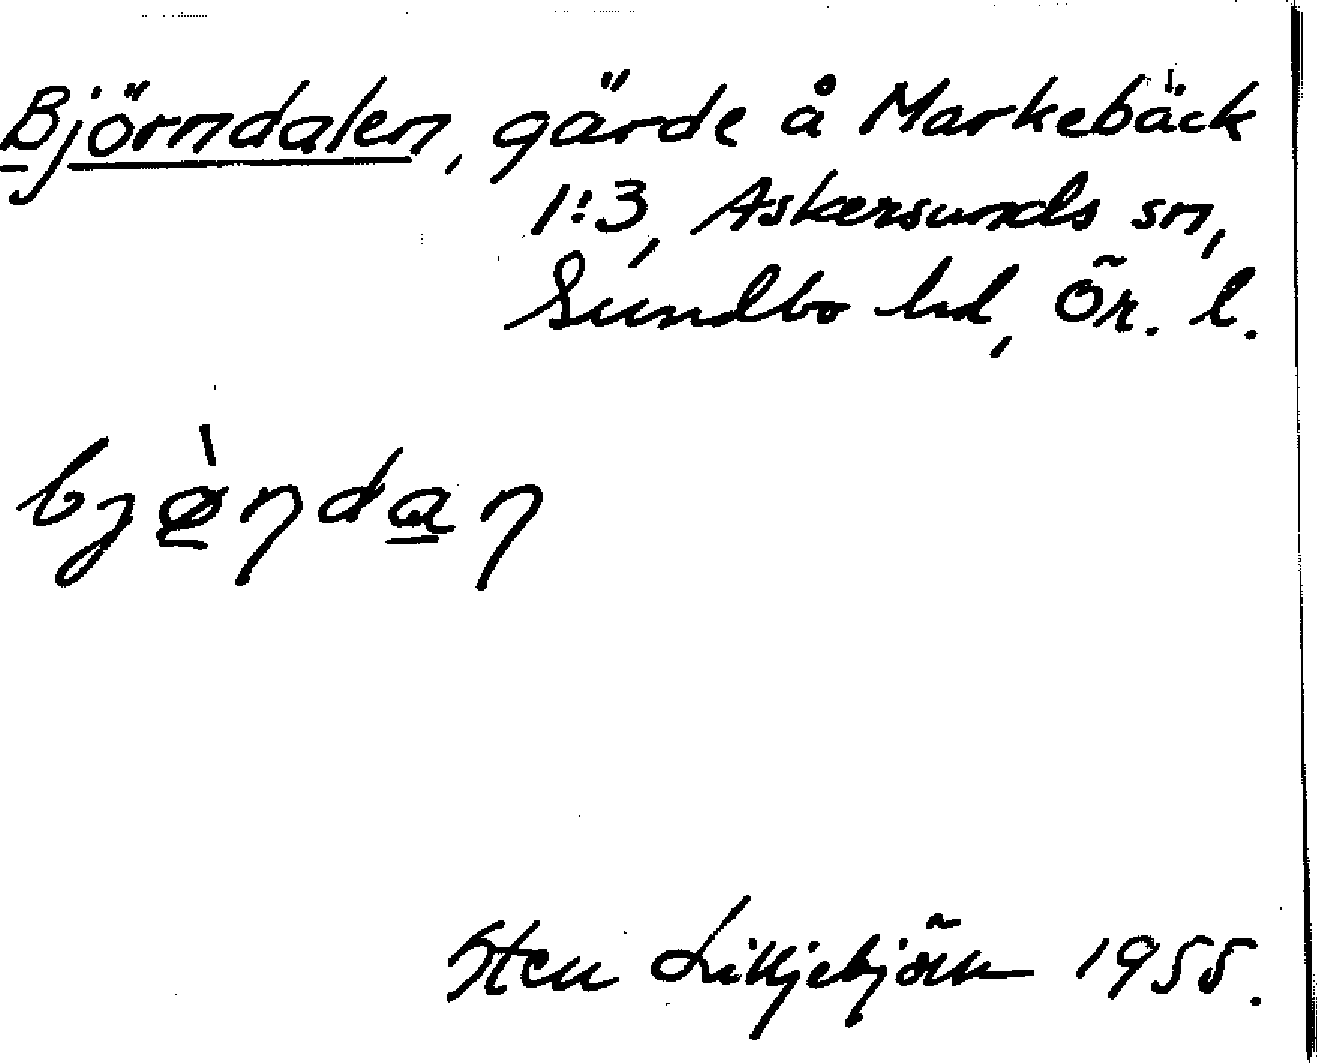 Björndalen, gärde å Markebäck
1:3, Askersunds sn,
Sundbo hd, Ör. l.
Sten Liljebjörn 1955.